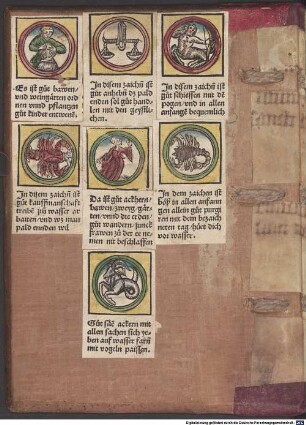 Es ist gůt bawen/
vnd weingarten ord
nen vnnd pflantzen
gůt kinder entwenẽ.
In disem zaichñ ist
gůt anhebñ dz pald
enden sol gůt hand
len mit den geyst
lichen.
In disem zaichñ ist
gůt schiessen mit dẽ
pogen vnd in allen
anfangẽ bequemlich
In disem zaichñ ist
gůt kauffmanschaft
treibẽ vñ wasser ar
baiten/vnd wz man
pald enndẽn wil
Da ist gůt ackhern/
bawen/zweyg/gar
ten/vnnd die erden
gůt wandern/junck
frawen zů der ee ne
men nit beschlaffen
In dem zaichen ist
böß in allen anfan
gen allein gůt purgi
ren mit dem bezaich
neten tag/hůet dich
vor wasser.
Gůt säẽ ackern mit
allen sachen sich ye
ben auf wasser farñ
mit vogeln paissen.